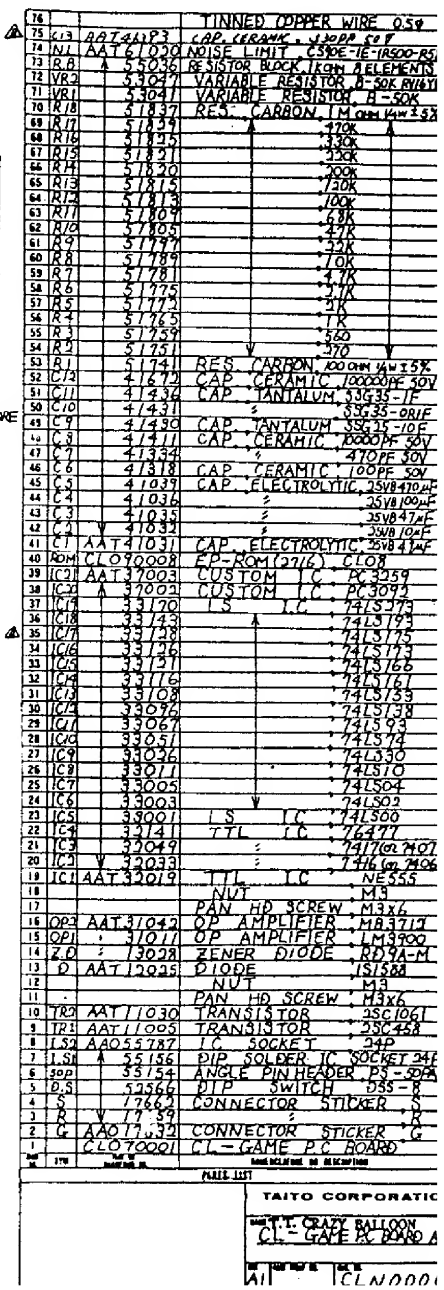 76 TINNED COPPER WIRE 0.5φ
75 C13 AAT41393 CAP. CERAMIC 330PF 50V
74 N.L AAT61020 NOISE LIMIT CS90E-1E-1R500-R5
73 R.B 55036 RESISTOR BLOCK 1KOHM 8 ELEMENTS
72 VR2 53047 VARIABLE RESISTOR B-50K RV16Y
71 VR1 53041 VARIABLE RESISTOR B-50K
70 R18 51837 RES. CARBON 1M OHM 1/4W ±5%
69 R17 51829 470K
68 R16 51825 330K
67 R15 51821 220K
66 R14 51820 200K
65 R13 51815 120K
64 R12 51813 100K
63 R11 51809 68K
62 R10 51805 47K
61 R9 51797 22K
60 R8 51789 10K
59 R7 51781 4.7K
58 R6 51775
57 R5 51772 2K
56 R4 51765 1K
55 R3 51759 560
54 R2 51751 270
53 R1 51741 RES. CARBON 100 OHM 1/4W ±5%
52 C12 41672 CAP. CERAMIC 100000PF 50V
51 C11 41436 CAP TANTALUM SSG35-1F
50 C10 41431 〃 SSG35-0R1F
49 C9 41430 CAP. TANTALUM SSG25-10F
48 C8 41411 CAP. CERAMIC 10000PF 50V
47 C7 41334 〃 470PF 50V
46 C6 41318 CAP. CERAMIC 100PF 50V
45 C5 41039 CAP. ELECTROLYTIC 25VB470μF
44 C4 41036 〃 25VB100μF
43 C3 41035 〃 25VB47μF
42 C2 41032 〃 25VB10μF
41 C1 AAT41031 CAP. ELECTROLYTIC 25VB4.7μF
40 ROM CLO90008 EP-ROM (2716) CL08
39 IC21 AAT37003 CUSTOM I.C PC3259
38 IC20 37002 CUSTOM I.C PC3092
37 IC19 33170 LS I.C 74LS273
36 IC18 33143 74LS193
35 IC17 33128 74LS175
34 IC16 33126 74LS173
33 IC15 33121 74LS166
32 IC14 33116 74LS161
31 IC13 33108 74LS153
30 IC12 33096 74LS138
29 IC11 33067 74LS93
28 IC10 33051 74LS74
27 IC9 33026 74LS30
26 IC8 33011 74LS10
25 IC7 33005 74LS04
24 IC6 33003 74LS02
23 IC5 33001 LS IC 74LS00
22 IC4 32141 TTL IC 76477
21 IC3 32049 〃 7417 (or 7407
20 IC2 32033 〃 7416 (or 7406
19 IC1 AAT32019 TTL I.C NE555
18 NUT M3
17 PAN HD SCREW M3x6
16 OP2 AAT31042 OP AMPLIFIER MB3712
15 OP1 31011 OP AMPLIFIER LM3900
14 Z.D 13028 ZENER DIODE RD9A-M
13 D AAT12025 DIODE 1S1588
12 NUT M3
11 PAN HD SCREW M3x6
10 TR2 AAT11030 TRANSISTOR 2SC1061
9 TR1 AAT11005 TRANSISTOR 2SC458
8 I.S2 AAO55787 I.C SOCKET 24P
7 I.S1 55156 DIP SOLDER IC SOCKET 24P
6 50P 55154 ANGLE PIN HEADER PS-50PA
5 D.S 52566 DIP SWITCH DSS-8
4 S 17662 CONNECTOR STICKER S
3 R 〃 R
2 G CONNECTOR STICKER G
1 CLO70001 CL-GAME P.C BOARD
NOMENCLATURE OR DESCRIPTION
PARTS LIST
ORE
TAITO CORPORATIO
T.T. CRAZY BALLOON
CL-GAME P.C BOARD A
A1 CLN0000